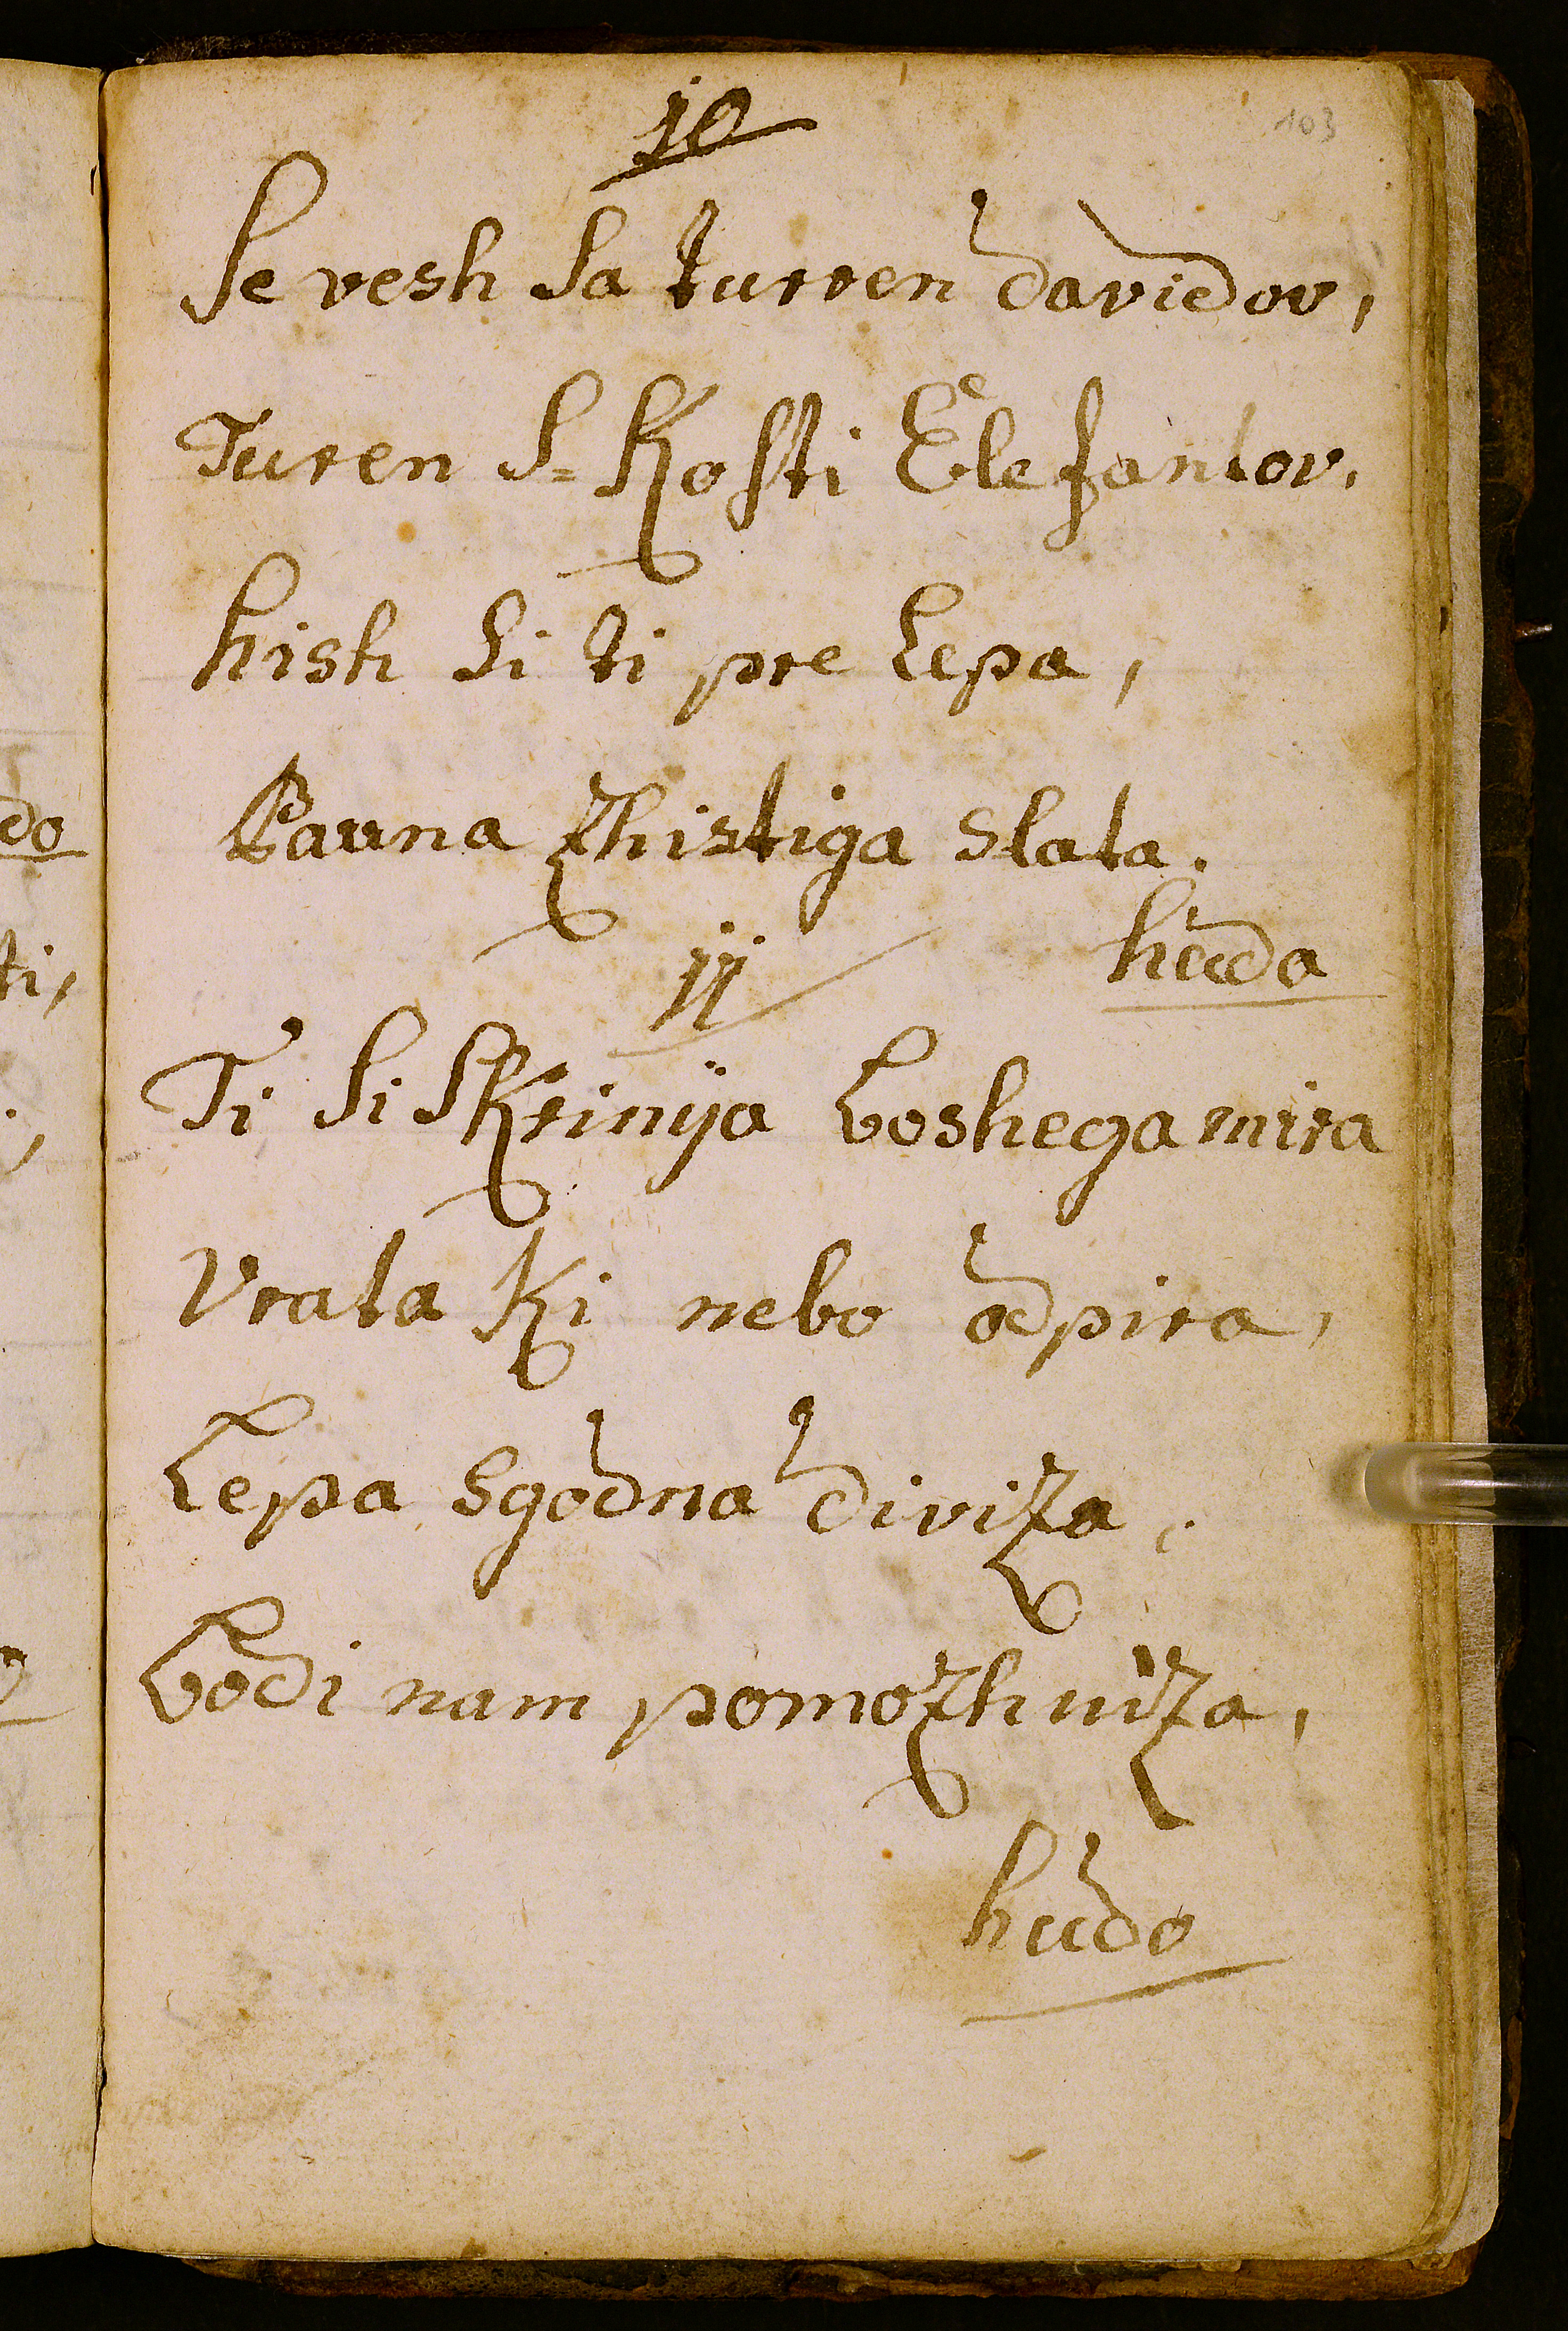 103
10
Se vesh Sa turren davidov,
Turen S= Kosti Elefantov,
hish Si ti pre lepa,
Pauna zhistiga slata.
huda
11
Ti Si Skrinija boshega mira
Vrata Ki nebo odpira,
Lepa sgodna diviza,
bodi nam pomozhniza,
hudo